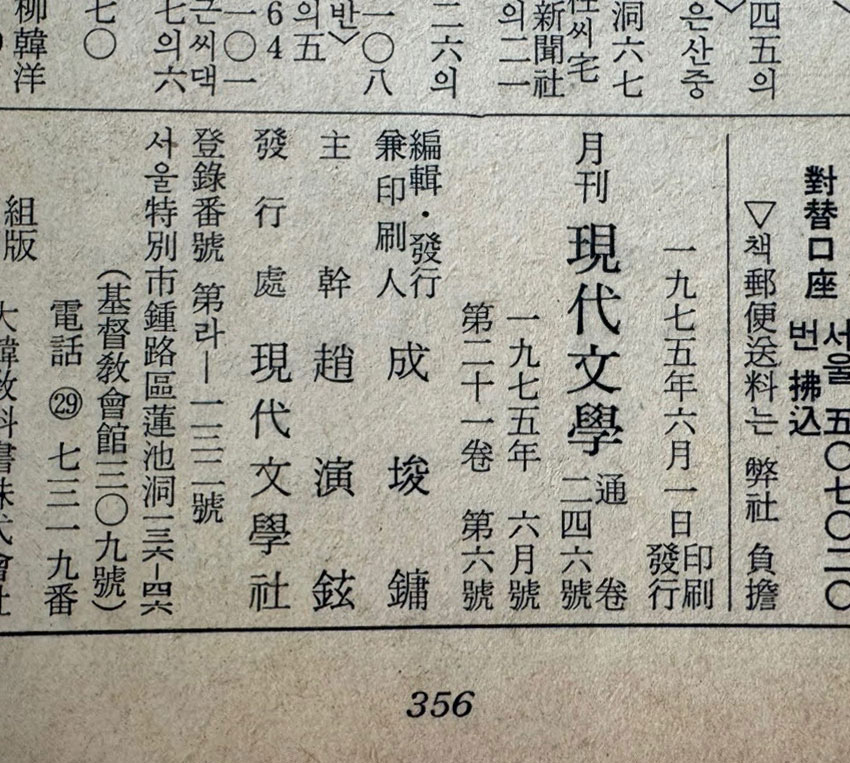 四五의
은산중
洞六七
씨宅
新聞社
의二一
二六의
一〇八
반>
의五
64
一〇一
근씨댁
七의六
七〇
柳韓洋
對替口座 서울 五〇七〇二〇
번 拂込
▽책郵便送料는 弊社 負擔
一九七五年六月一日 印刷
發行
月刊 現代文學 通卷
二四六號
一九七五年 六月號
第二十一卷 第六號
編輯·發行
兼印刷人 成埈鏞
主幹 趙演鉉
發行處 現代文學社
登錄番號 第라—一三二號
서울特別市鍾路區蓮池洞一三六—四六
(基督敎會館三〇九號)
電話 ㉙ 七三一九番
組版 大韓敎科書株式會社
356